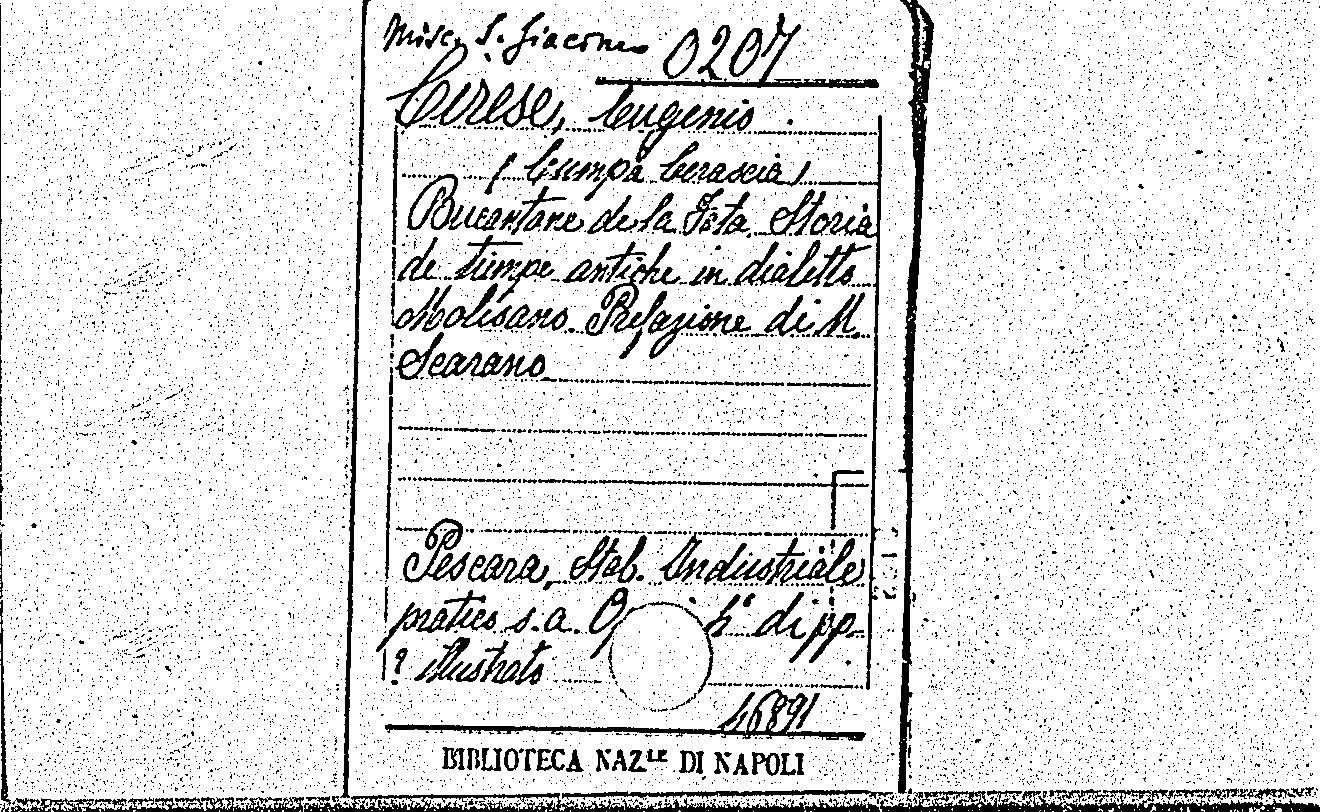 Misc. S. Giacomo 0207
Cirese, Eugenio
(Cumpà Cerascia)
Sciantane de la Fata. Storia
de tiempe antiche in dialetto
Molisano. Prefazione di M.
Scarano
Pescara, Stab. Industriale
pratico s.a. di pp.
? illustrato
46891
BIBLIOTECA NAZLE DI NAPOLI